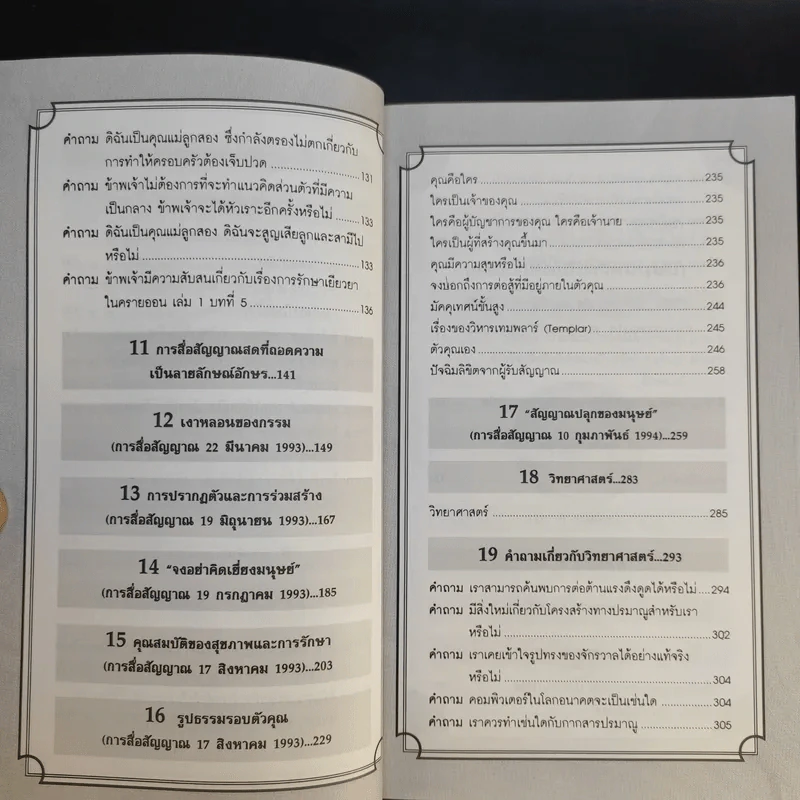 คำถาม ดิฉันเป็นคุณแม่ลูกสอง ซึ่งกำลังตรองไม่ตกเกี่ยวกับ
การทำให้ครอบครัวต้องเจ็บปวด ............................131
คำถาม ข้าพเจ้าไม่ต้องการที่จะทำแนวคิดส่วนตัวที่มีความ
เป็นกลาง ข้าพเจ้าจะได้หัวเราะอีกครั้งหรือไม่ ..........133
คำถาม ดิฉันเป็นคุณแม่ลูกสอง ดิฉันจะสูญเสียลูกและสามีไป
หรือไม่ ........................................................133
คำถาม ข้าพเจ้ามีความสับสนเกี่ยวกับเรื่องการรักษาเยียวยา
ในครายออน เล่ม 1 บทที่ 5 ............................136
11 การสื่อสัญญาณสดที่ถอดความ
เป็นลายลักษณ์อักษร...141
12 เงาหลอนของกรรม
(การสื่อสัญญาณ 22 มีนาคม 1993)...149
13 การปรากฏตัวและการร่วมสร้าง
(การสื่อสัญญาณ 19 มิถุนายน 1993)...167
14 “จงอย่าคิดเยี่ยงมนุษย์”
(การสื่อสัญญาณ 19 กรกฎาคม 1993)...185
15 คุณสมบัติของสุขภาพและการรักษา
(การสื่อสัญญาณ 17 สิงหาคม 1993)...203
16 รูปธรรมรอบตัวคุณ
(การสื่อสัญญาณ 17 สิงหาคม 1993)...229
คุณคือใคร ........................................................235
ใครเป็นเจ้าของคุณ ................................................235
ใครคือผู้บัญชาการของคุณ ใครคือเจ้านาย ....................235
ใครเป็นผู้ที่สร้างคุณขึ้นมา ........................................235
คุณมีความสุขหรือไม่ ............................................236
จงบอกถึงการต่อสู้ที่มีอยู่ภายในตัวคุณ ........................236
มัคคุเทศน์ชั้นสูง ................................................244
เรื่องของวิหารเทมพลาร์ (Templar)............................245
ตัวคุณเอง ........................................................246
ปัจฉิมลิขิตจากผู้รับสัญญาณ ....................................258
17 “สัญญาณปลุกของมนุษย์”
(การสื่อสัญญาณ 10 กุมภาพันธ์ 1994)...259
18 วิทยาศาสตร์...283
วิทยาศาสตร์ ....................................................285
19 คำถามเกี่ยวกับวิทยาศาสตร์...293
คำถาม เราสามารถค้นพบการต่อต้านแรงดึงดูดได้หรือไม่ ....294
คำถาม มีสิ่งใหม่เกี่ยวกับโครงสร้างทางปรมาณูสำหรับเรา
หรือไม่ ....................................................302
คำถาม เราเคยเข้าใจรูปทรงของจักรวาลได้อย่างแท้จริง
หรือไม่ ....................................................304
คำถาม คอมพิวเตอร์ในโลกอนาคตจะเป็นเช่นใด ................304
คำถาม เราควรทำเช่นใดกับกากสารปรมาณู ....................305